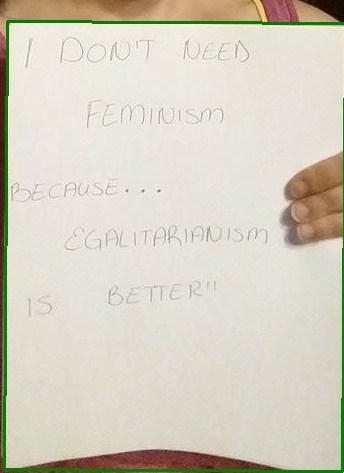 I DON'T NEED
FEMINISM
BECAUSE...
EGALITARIANISM
IS BETTER"